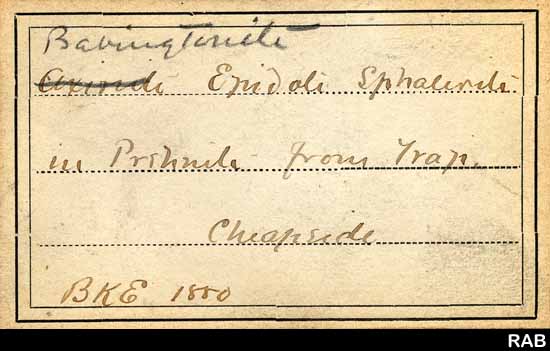 Babingtonite
Axinite Epidote Sphalerite
in Prehnite from Trap.
Cheapside
BKE 1880
RAB